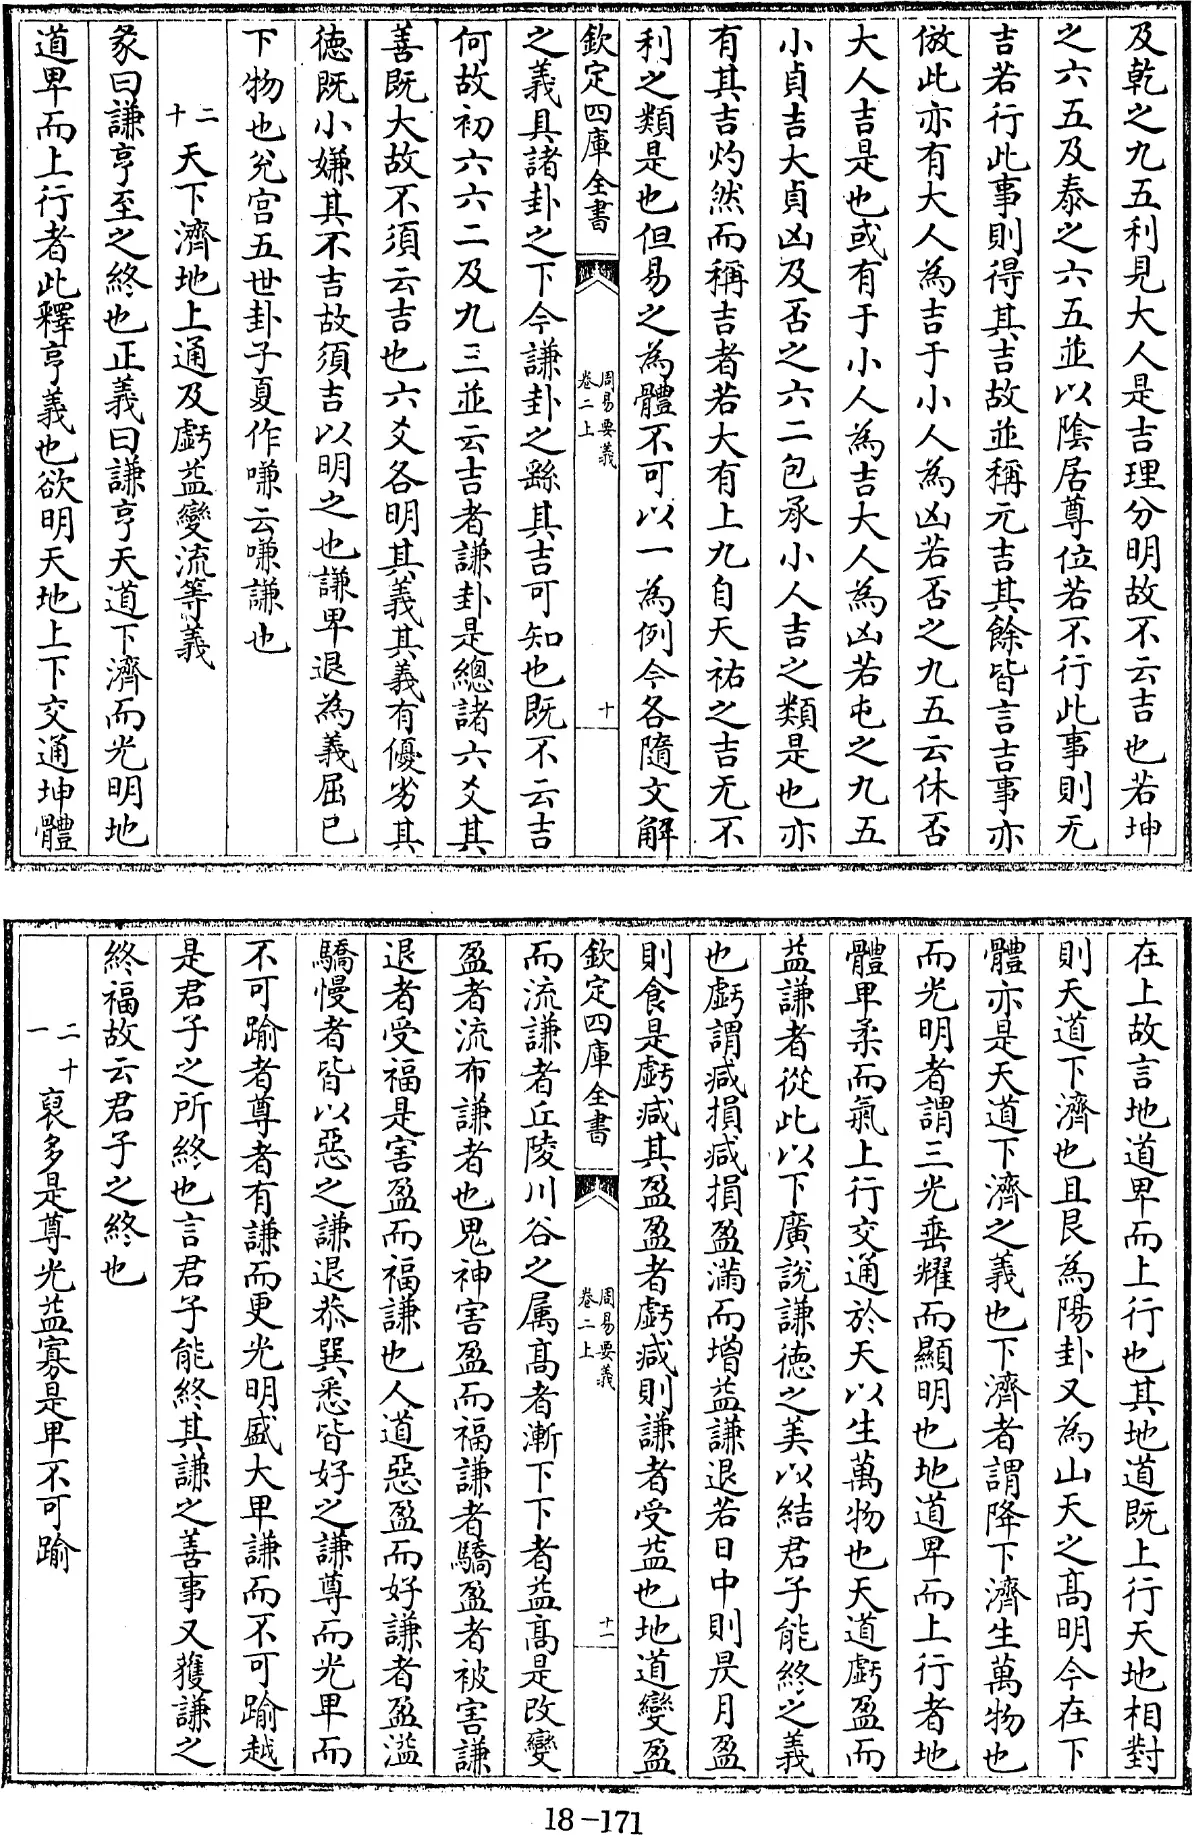 及乾之九五利見大人是吉理分明故不云吉也若坤
之六五及泰之六五並以陰居尊位若不行此事則无
吉若行此事則得其吉故並稱元吉其餘皆言吉事亦
倣此亦有大人為吉于小人為凶若否之九五云休否
大人吉是也或有于小人為吉大人為凶若屯之九五
小貞吉大貞凶及否之六二包承小人吉之類是也亦
有其吉灼然而稱吉者若大有上九自天祐之吉无不
利之類是也但易之為體不可以一為例今各隨文解
欽定四庫全書
周易要義
卷二上
十
之義具諸卦之下今謙卦之繇其吉可知也既不云吉
何故初六六二及九三並云吉者謙卦是總諸六爻其
善既大故不須云吉也六爻各明其義其義有優劣其
徳既小嫌其不吉故須吉以明之也謙卑退為義屈已
下物也兊宫五世卦子夏作嗛云嗛謙也
二十 天下濟地上通及虧益變流等義
彖曰謙亨至之終也正義曰謙亨天道下濟而光明地
道卑而上行者此釋亨義也欲明天地上下交通坤體
在上故言地道卑而上行也其地道既上行天地相對
則天道下濟也且艮為陽卦又為山天之髙明今在下
體亦是天道下濟之義也下濟者謂降下濟生萬物也
而光明者謂三光垂耀而顯明也地道卑而上行者地
體卑柔而氣上行交通於天以生萬物也天道虧盈而
益謙者從此以下廣說謙徳之美以結君子能終之義
也虧謂減損減損盈滿而増益謙退若日中則昃月盈
則食是虧減其盈盈者虧減則謙者受益也地道變盈
欽定四庫全書
周易要義
卷二上
十一
而流謙者丘陵川谷之属髙者漸下下者益髙是改變
盈者流布謙者也鬼神害盈而福謙者驕盈者被害謙
退者受福是害盈而福謙也人道惡盈而好謙者盈溢
驕慢者皆以惡之謙退恭巽悉皆好之謙尊而光卑而
不可踰者尊者有謙而更光明盛大卑謙而不可踰越
是君子之所終也言君子能終其謙之善事又獲謙之
終福故云君子之終也
二十一 裒多是尊光益寡是卑不可踰
18-171